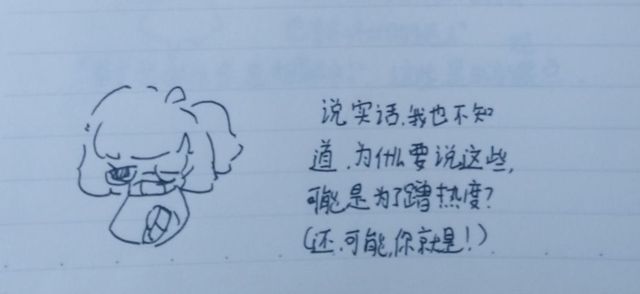 说实话,我也不知
道,为什么要说这些,
可能是为了蹭热度?
(还,可能,你就是!)